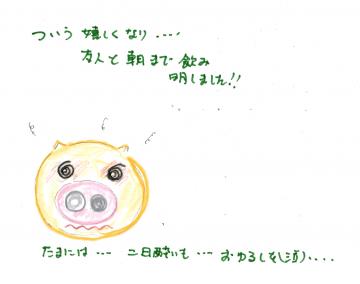 ついう 嬉しくなり ････
友人と 朝まで 飲み
明しました!!
たまには ･･･ 二日酔いも ･･･ おゆるしを(涙)････